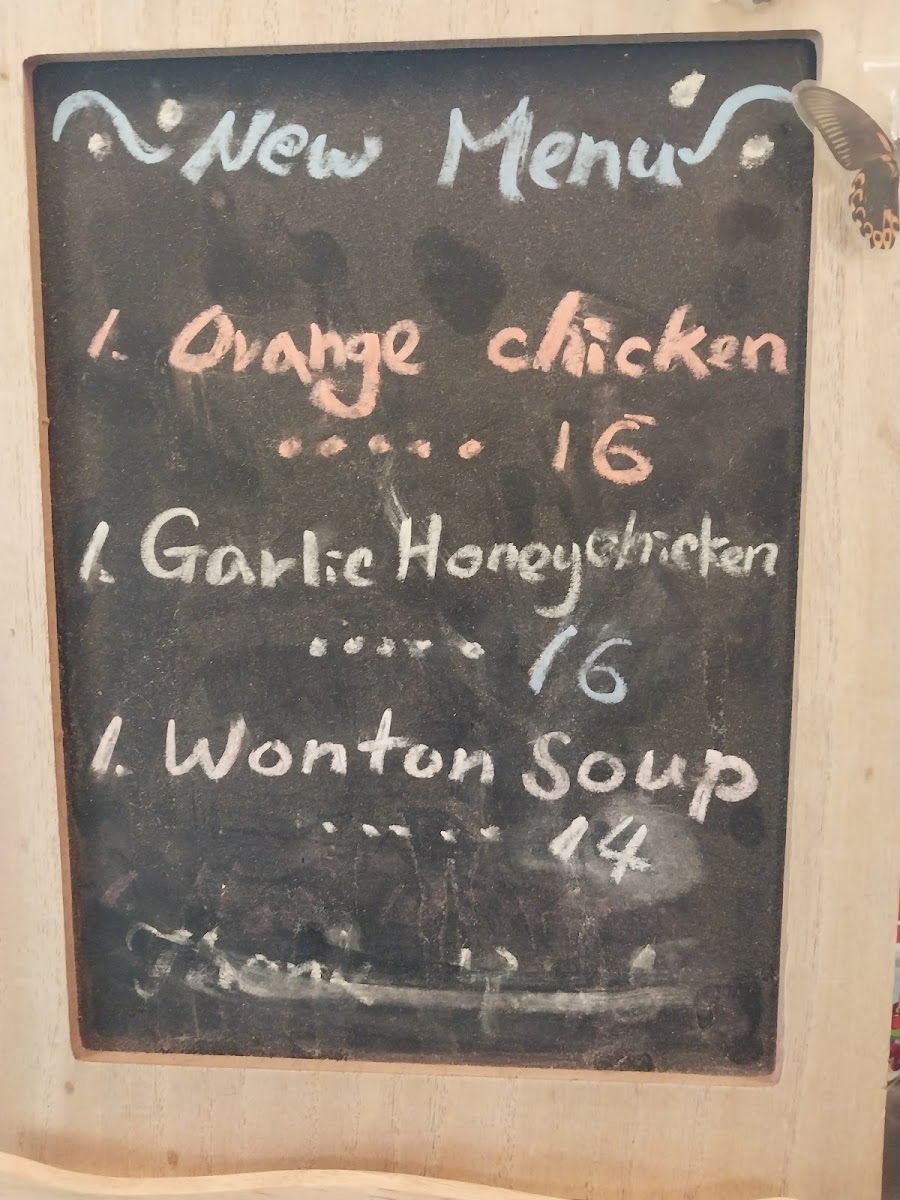 New Menu
1. Orange chicken
..... 16
1. Garlic Honey chicken
..... 16
1. Wonton Soup
..... 14